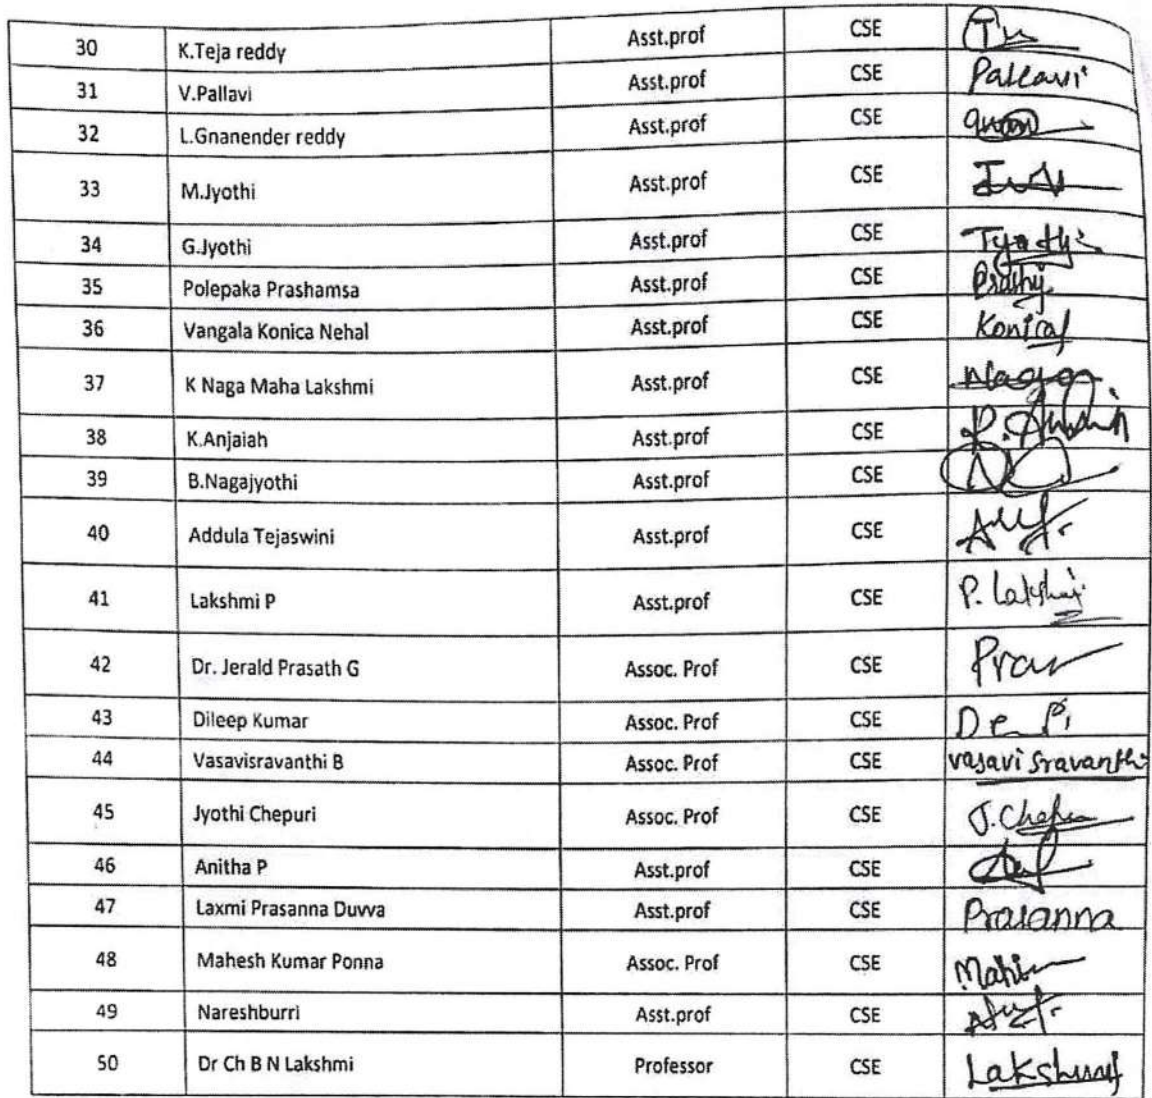 30 K.Teja reddy Asst.prof CSE
31 V.Pallavi Asst.prof CSE Pallavi
32 L.Gnanender reddy Asst.prof CSE
33 M.Jyothi Asst.prof CSE
34 G.Jyothi Asst.prof CSE Jyothi
35 Polepaka Prashamsa Asst.prof CSE
36 Vangala Konica Nehal Asst.prof CSE
37 K Naga Maha Lakshmi Asst.prof CSE
38 K.Anjaiah Asst.prof CSE
39 B.Nagajyothi Asst.prof CSE
40 Addula Tejaswini Asst.prof CSE
41 Lakshmi P Asst.prof CSE P. Lakshmi
42 Dr. Jerald Prasath G Assoc. Prof CSE
43 Dileep Kumar Assoc. Prof CSE
44 Vasavisravanthi B Assoc. Prof CSE vasavi sravanthi
45 Jyothi Chepuri Assoc. Prof CSE
46 Anitha P Asst.prof CSE
47 Laxmi Prasanna Duvva Asst.prof CSE Prasanna
48 Mahesh Kumar Ponna Assoc. Prof CSE
49 Nareshburri Asst.prof CSE
50 Dr Ch B N Lakshmi Professor CSE